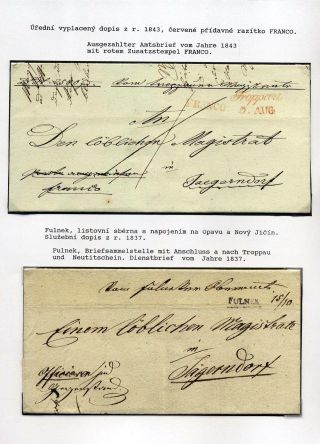 Úřední vyplacený dopis z r. 1843, červené přídavné razítko FRANCO.
Ausgezahlter Amtsbrief vom Jahre 1843
mit rotem Zusatzstempel FRANCO.
Troppau
5. AUG
An
Den löblichen Magistrat
in
franco
Jaegerndorf
Fulnek, listovní sběrna s napojením na Opavu a Nový Jičín.
Služební dopis z r. 1837.
Fulnek, Briefsammelstelle mit Anschluss a nach Troppau
und Neutitschein. Dienstbrief vom Jahre 1837.
FULNEK
15/10
Einem löblichen Magistrate
in
Jägerndorf